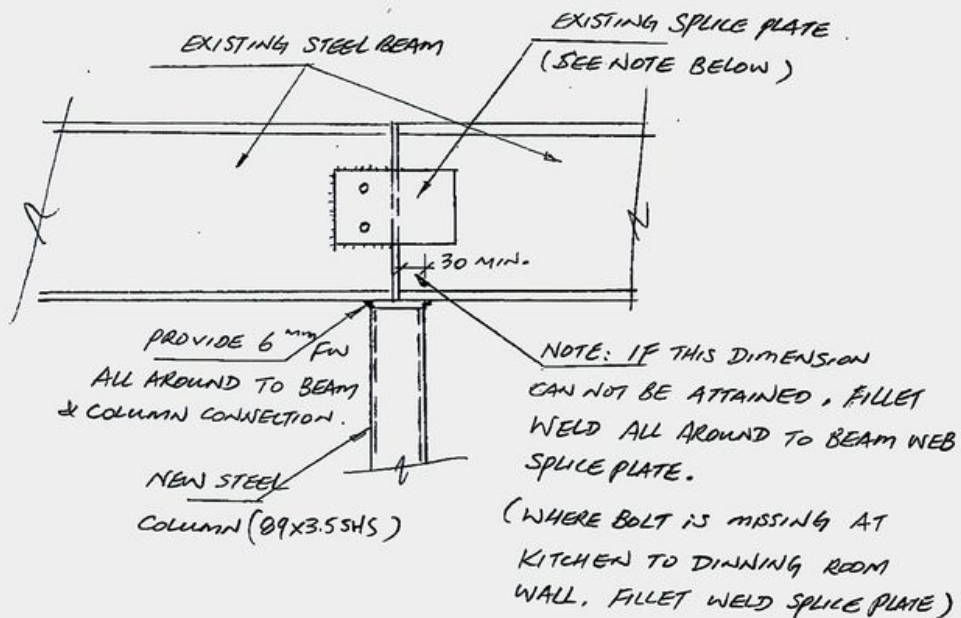 EXISTING STEEL BEAM
EXISTING SPLICE PLATE
(SEE NOTE BELOW)
30 MIN.
PROVIDE 6 mm FW
ALL AROUND TO BEAM
& COLUMN CONNECTION.
NEW STEEL
COLUMN (89x3.5 SHS)
NOTE: IF THIS DIMENSION
CAN NOT BE ATTAINED, FILLET
WELD ALL AROUND TO BEAM WEB
SPLICE PLATE.
(WHERE BOLT IS MISSING AT
KITCHEN TO DINNING ROOM
WALL, FILLET WELD SPLICE PLATE)